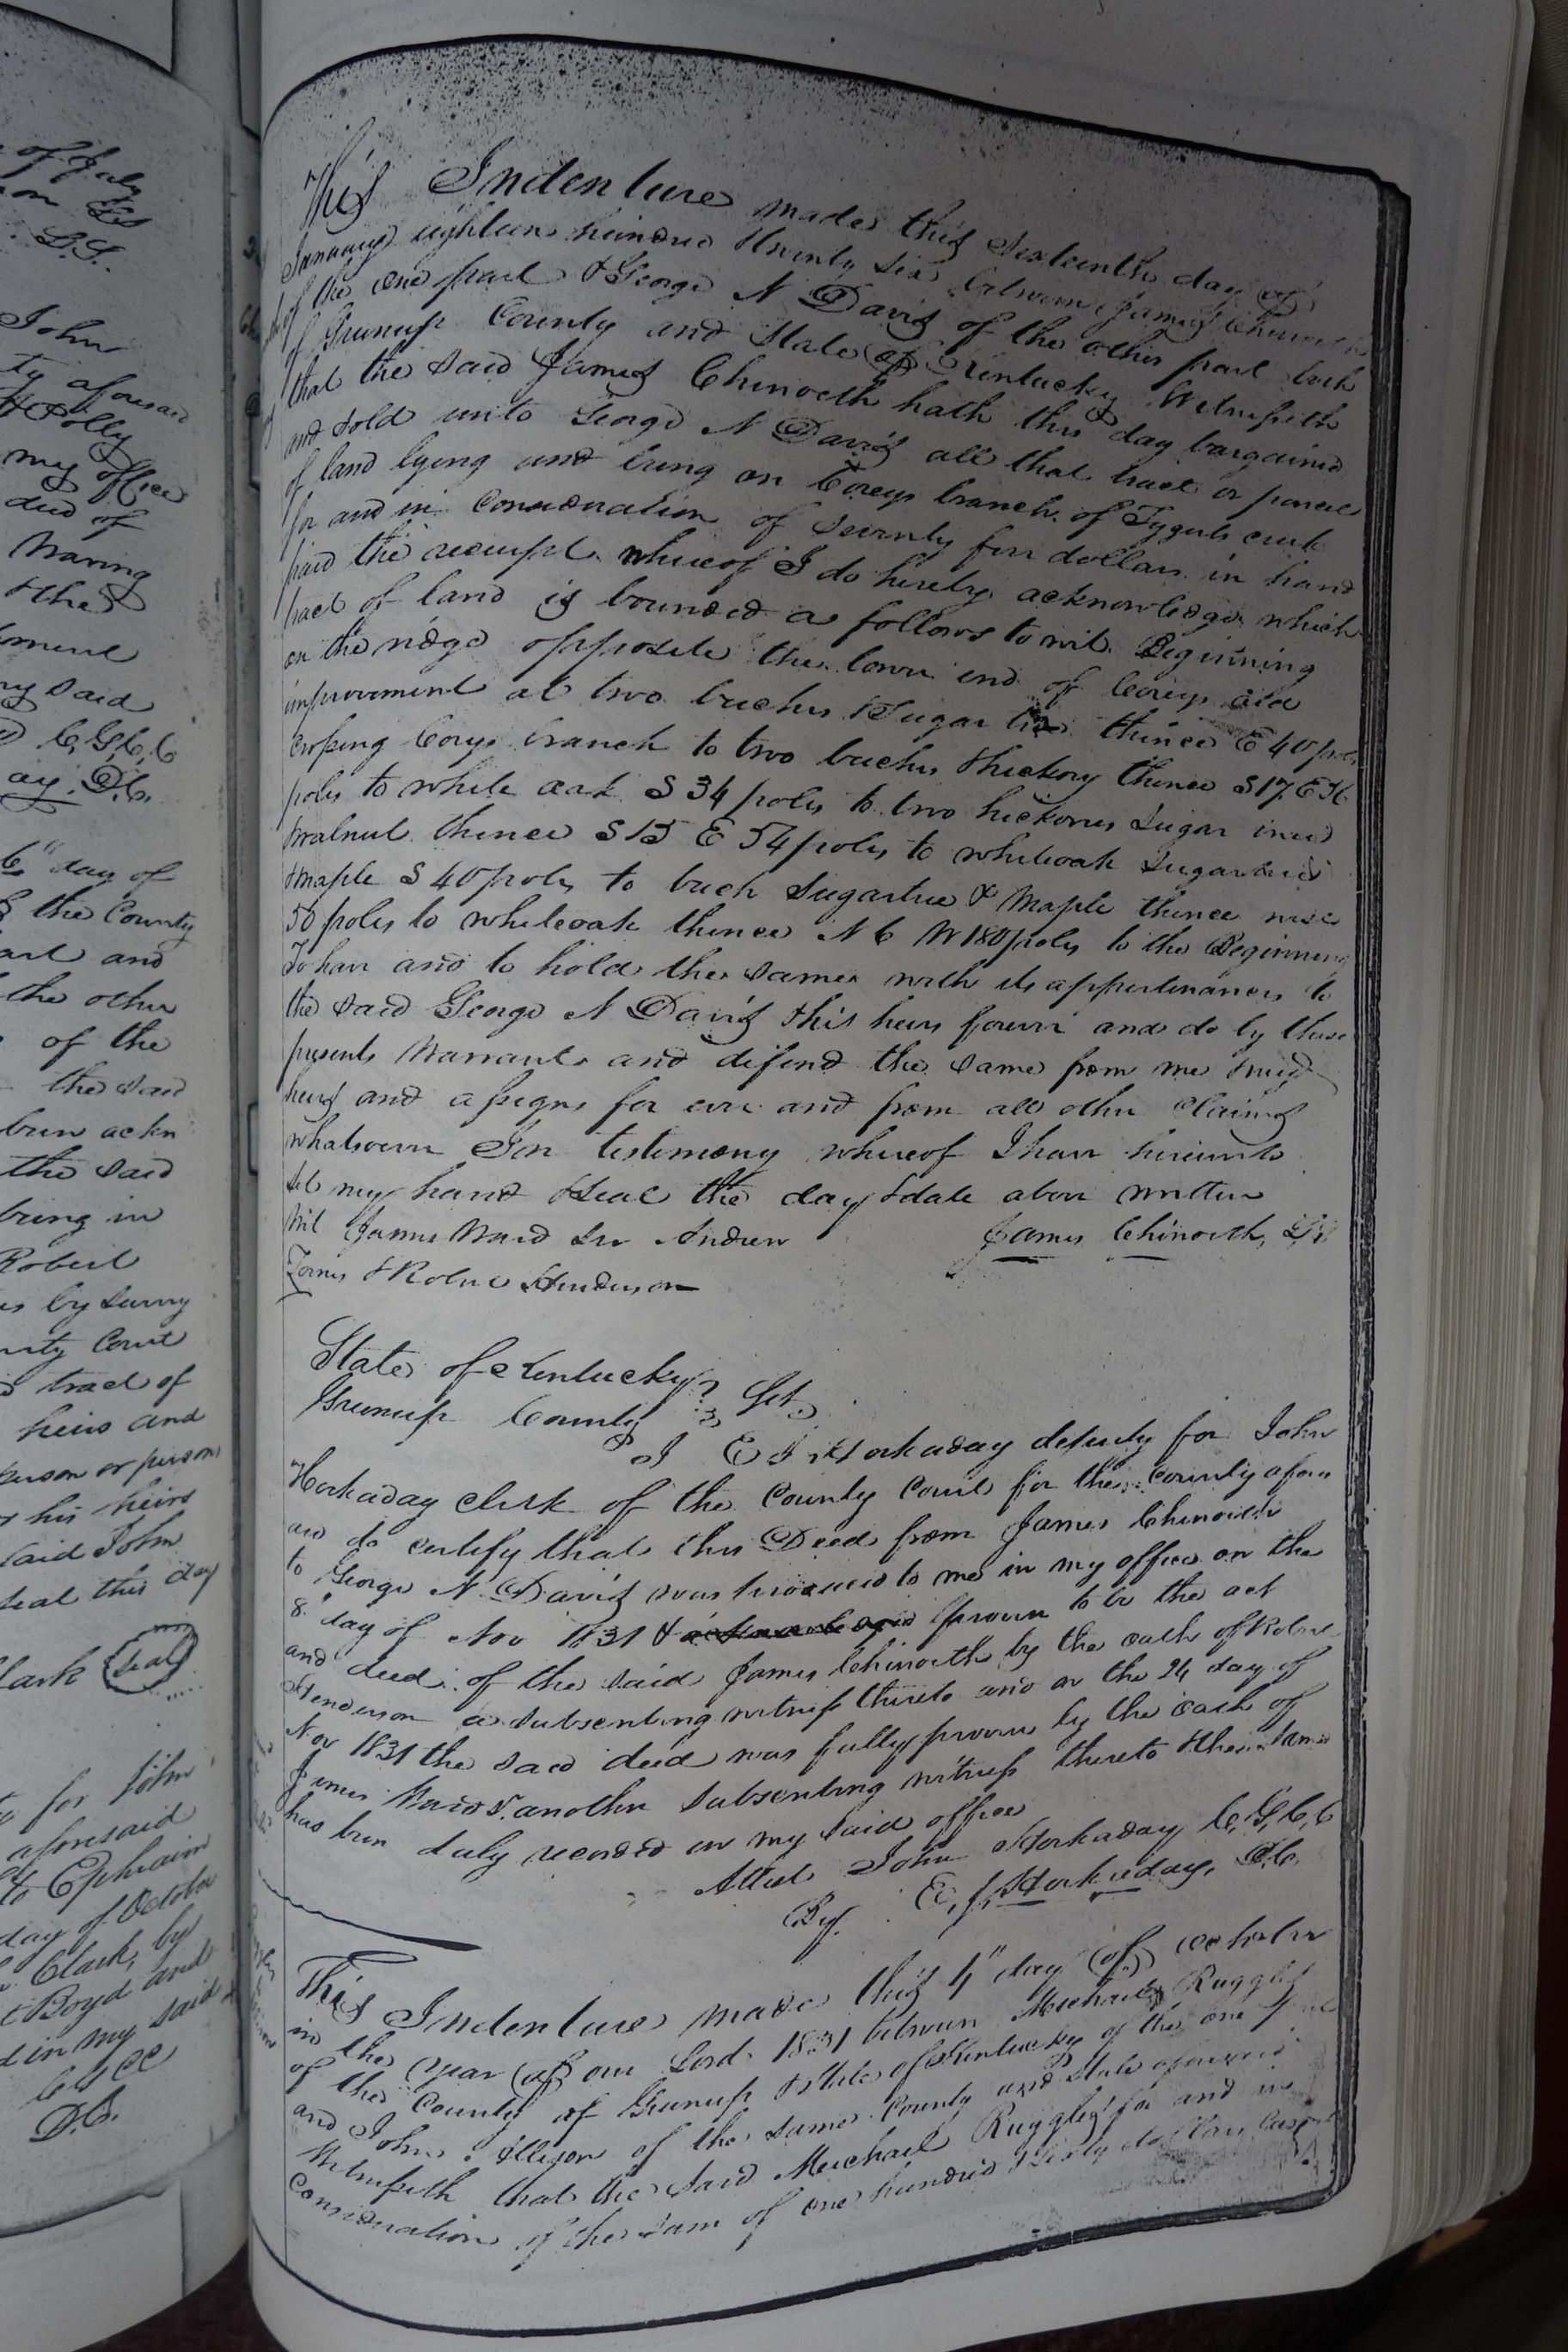 of July
John
ty aforesaid
& Polly
my office
deed of
Waring
& the
ry said
C.G.C.C
ay. D.C.
6" day of
& the County
art and
the other
of the
the said
been ackn
the said
being in
Robert
es by survey
nty Court
tract of
heirs and
person or person
his heirs
said John
seal this day
Clark (Seal)
for John
aforesaid
to Ephraim
day of October
Clark, by
& Boyd and
d in my said
D.C.
This Indenture made this Sixteenth day of
January eighteen hundred & twenty six between James Chinoweth
of the one part & George N Davis of the other part both
of Greenup County and State of Kentucky Witnesseth
that the said James Chinoeth hath this day bargained
and sold unto George N Davis all that tract or parcel
of land lying and being on Coreys branch of Tygerts creek
for and in consideration of Seventy five dollars in hand
paid the receipt whereof I do hereby acknowledge which
tract of land is bounded as follows to wit Beginning
on the ridge opposite the lower end of Coreys old
improvement at two buches & Sugar tree thence E 40 poles
crossing Corys branch to two buches & hickory thence S 17 E 36
poles to white oak S 34 poles to two hickories Sugar tree
& walnut thence S 15 E 54 poles to whiteoak Sugartree
& maple S 40 poles to buch Sugartree & Maple thence west
50 poles to whiteoak thence N 6 W 180 poles to the Beginning
To have and to hold the same with its appertenances to
the said George N Davis & his heirs forever and do by these
presents Warrant and defend the same from me & my
heirs and assigns for ever and from all other claims
whatsoever In testimony whereof I have hereunto
set my hand & seal the day & date above written
Wit James Ward Sr Andrew James Chinoeth, L.S.
Zornes & Robert Henderson
State of Kentucky
Greenup County Sct.
I E J Hockaday deputy for John
Hockaday clerk of the County Court for the county afore
said do certify that this Deed from James Chinoeth
to George N. Davis was produced to me in my office on the
8" day of Nov 1831 & proven to be the act
and deed of the said James Chinoeth by the oath of Robert
Henderson a subscribing witness thereto and on the 24 day of
Nov 1831 the said deed was fully proven by the oath of
James Ward Sr. another subscribing witness thereto & the same
has been duly recorded in my said office
Attest John Hockaday C.G.C.C
By E. J. Hockaday, D.C.
This Indenture made this 4" day of October
in the year of our Lord 1831 between Michael Ruggles
of the County of Greenup & State of Kentucky of the one part
and John Allison of the same County and State aforesaid
Witnesseth that the said Meichael Ruggles for and in
consideration of the sum of one hundred & sixty dollars